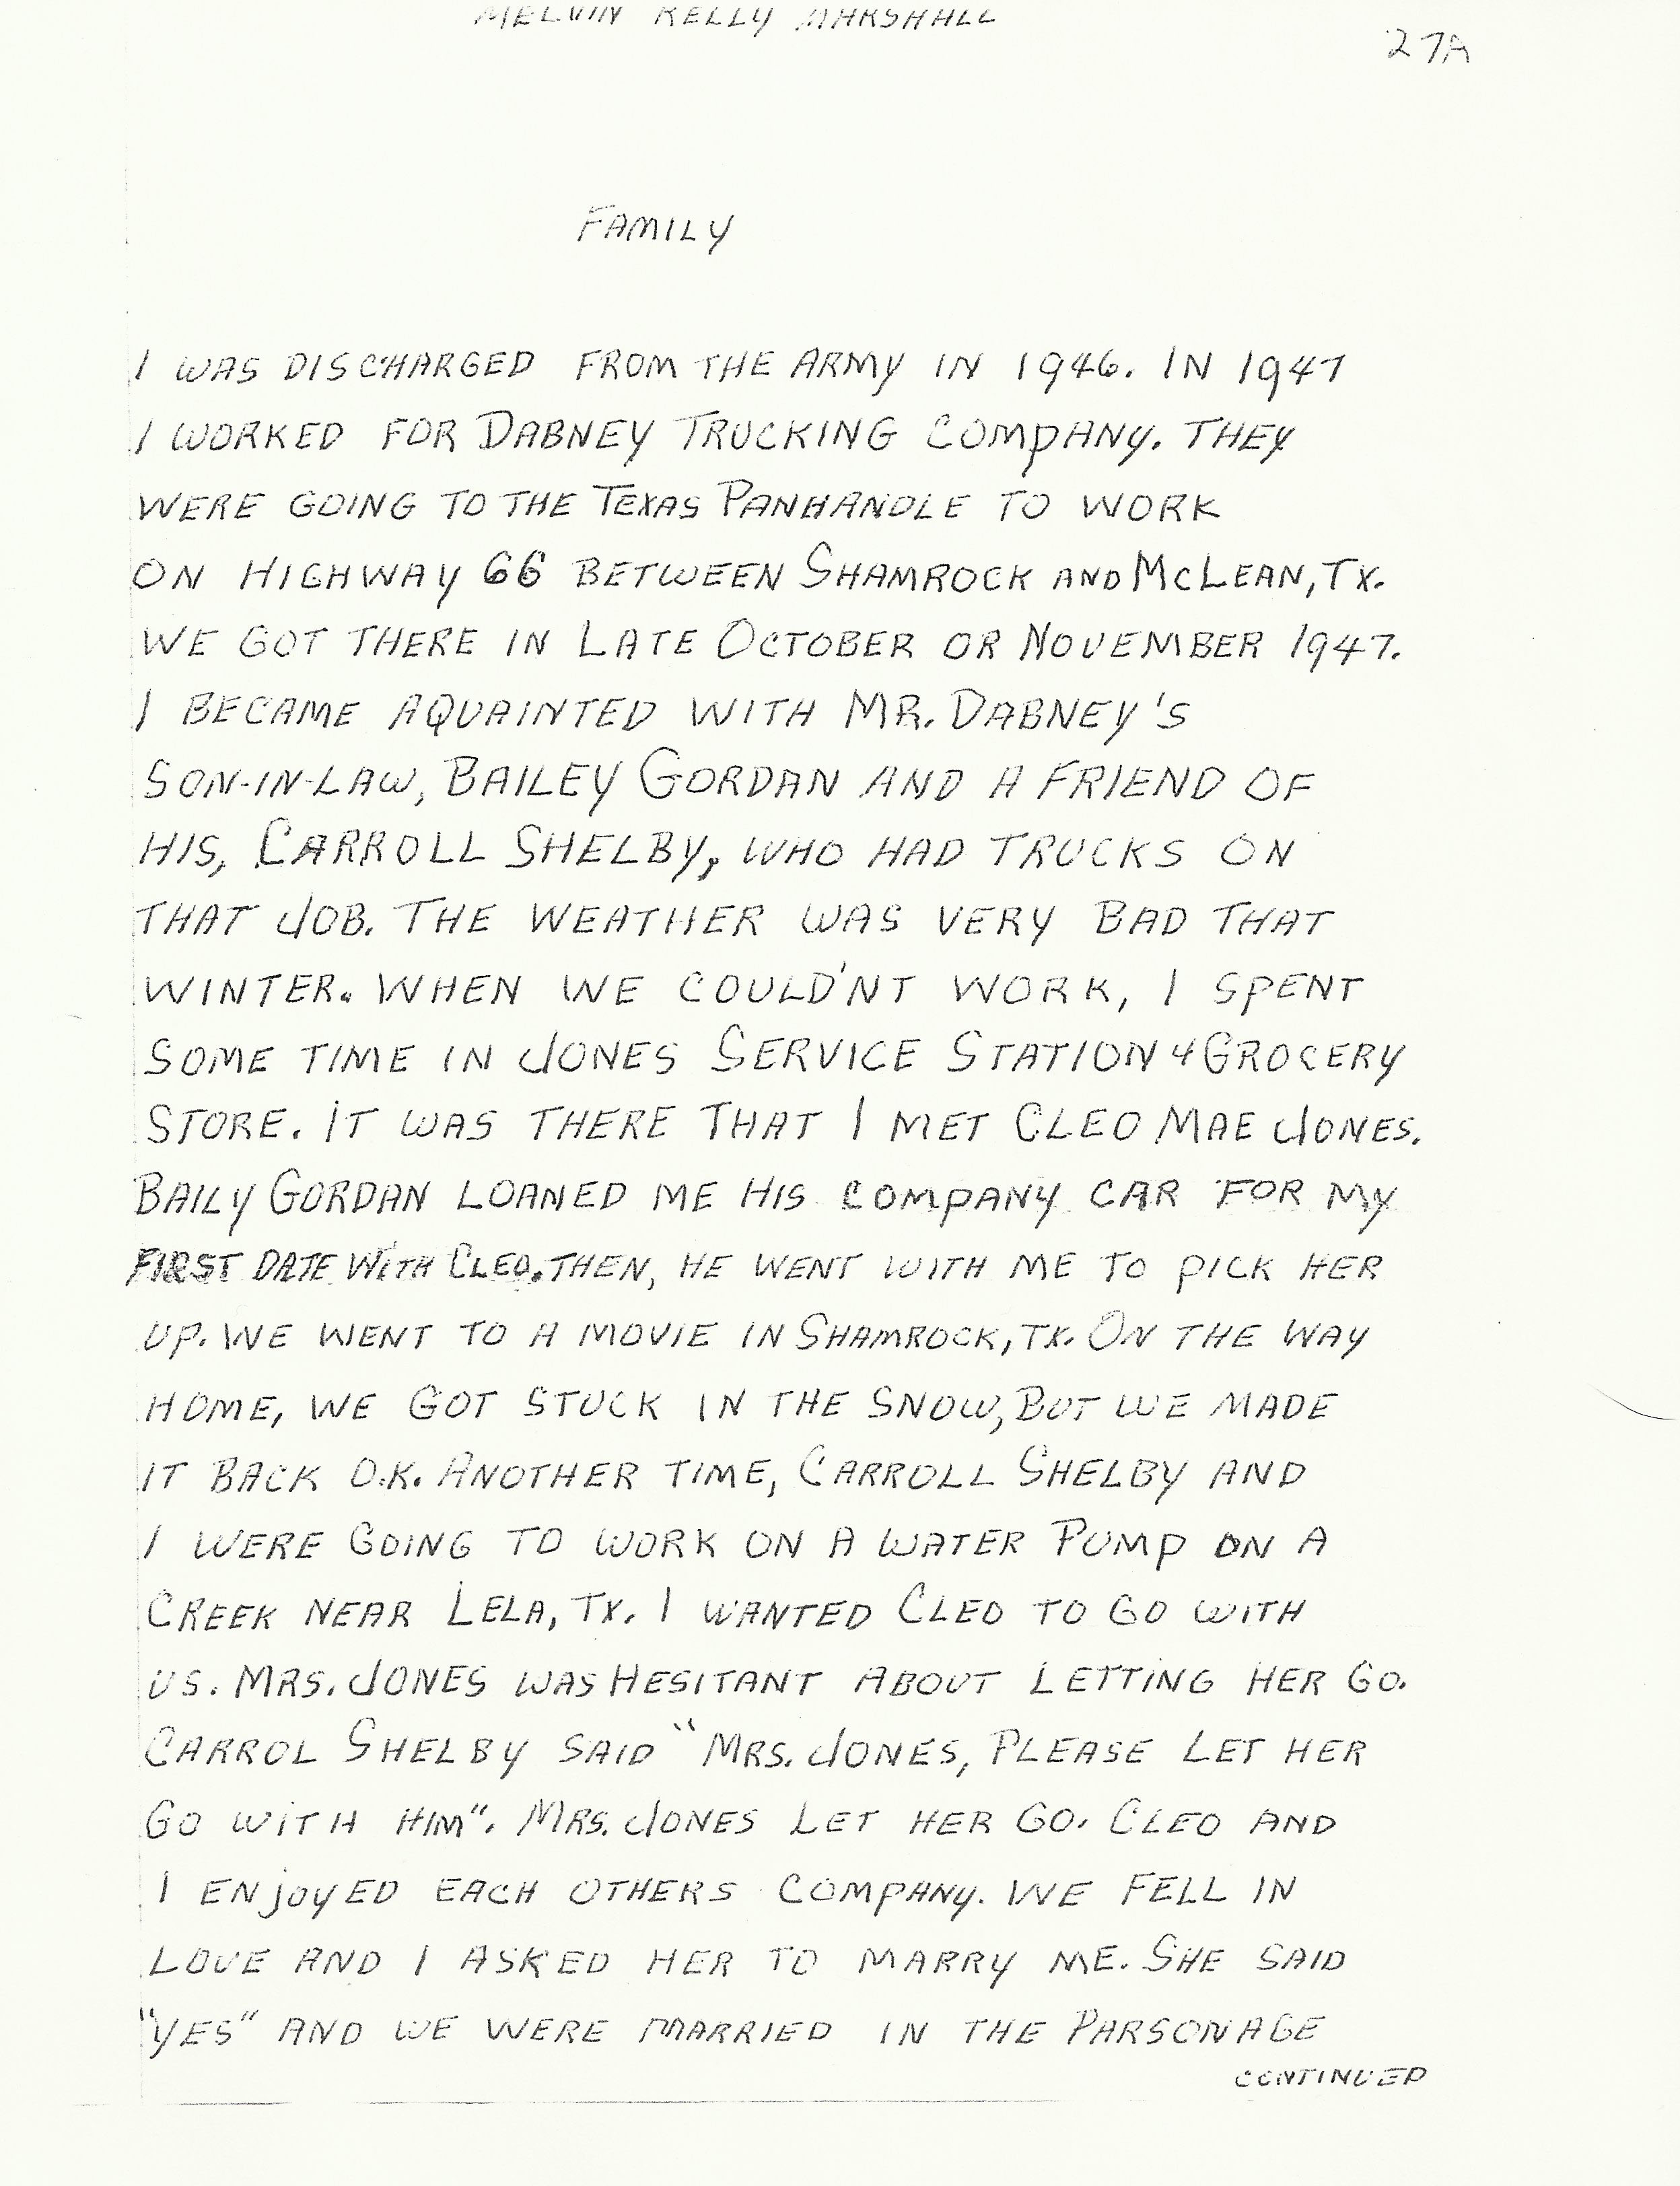 MELVIN KELLY MARSHALL
27A
FAMILY
I WAS DISCHARGED FROM THE ARMY IN 1946. IN 1947
I WORKED FOR DABNEY TRUCKING COMPANY. THEY
WERE GOING TO THE TEXAS PANHANDLE TO WORK
ON HIGHWAY 66 BETWEEN SHAMROCK AND McLEAN, TX.
WE GOT THERE IN LATE OCTOBER OR NOVEMBER 1947.
I BECAME AQUAINTED WITH MR. DABNEY'S
SON-IN-LAW, BAILEY GORDAN AND A FRIEND OF
HIS, CARROLL SHELBY, WHO HAD TRUCKS ON
THAT JOB. THE WEATHER WAS VERY BAD THAT
WINTER. WHEN WE COULD'NT WORK, I SPENT
SOME TIME IN JONES SERVICE STATION & GROCERY
STORE. IT WAS THERE THAT I MET CLEO MAE JONES.
BAILY GORDAN LOANED ME HIS COMPANY CAR FOR MY
FIRST DATE WITH CLEO. THEN, HE WENT WITH ME TO PICK HER
UP. WE WENT TO A MOVIE IN SHAMROCK, TX. ON THE WAY
HOME, WE GOT STUCK IN THE SNOW, BUT WE MADE
IT BACK O.K. ANOTHER TIME, CARROLL SHELBY AND
I WERE GOING TO WORK ON A WATER PUMP ON A
CREEK NEAR LELA, TX. I WANTED CLEO TO GO WITH
US. MRS. JONES WAS HESITANT ABOUT LETTING HER GO.
CARROL SHELBY SAID "MRS. JONES, PLEASE LET HER
GO WITH HIM". MRS. JONES LET HER GO. CLEO AND
I ENJOYED EACH OTHERS COMPANY. WE FELL IN
LOVE AND I ASKED HER TO MARRY ME. SHE SAID
"YES" AND WE WERE MARRIED IN THE PARSONAGE
CONTINUED